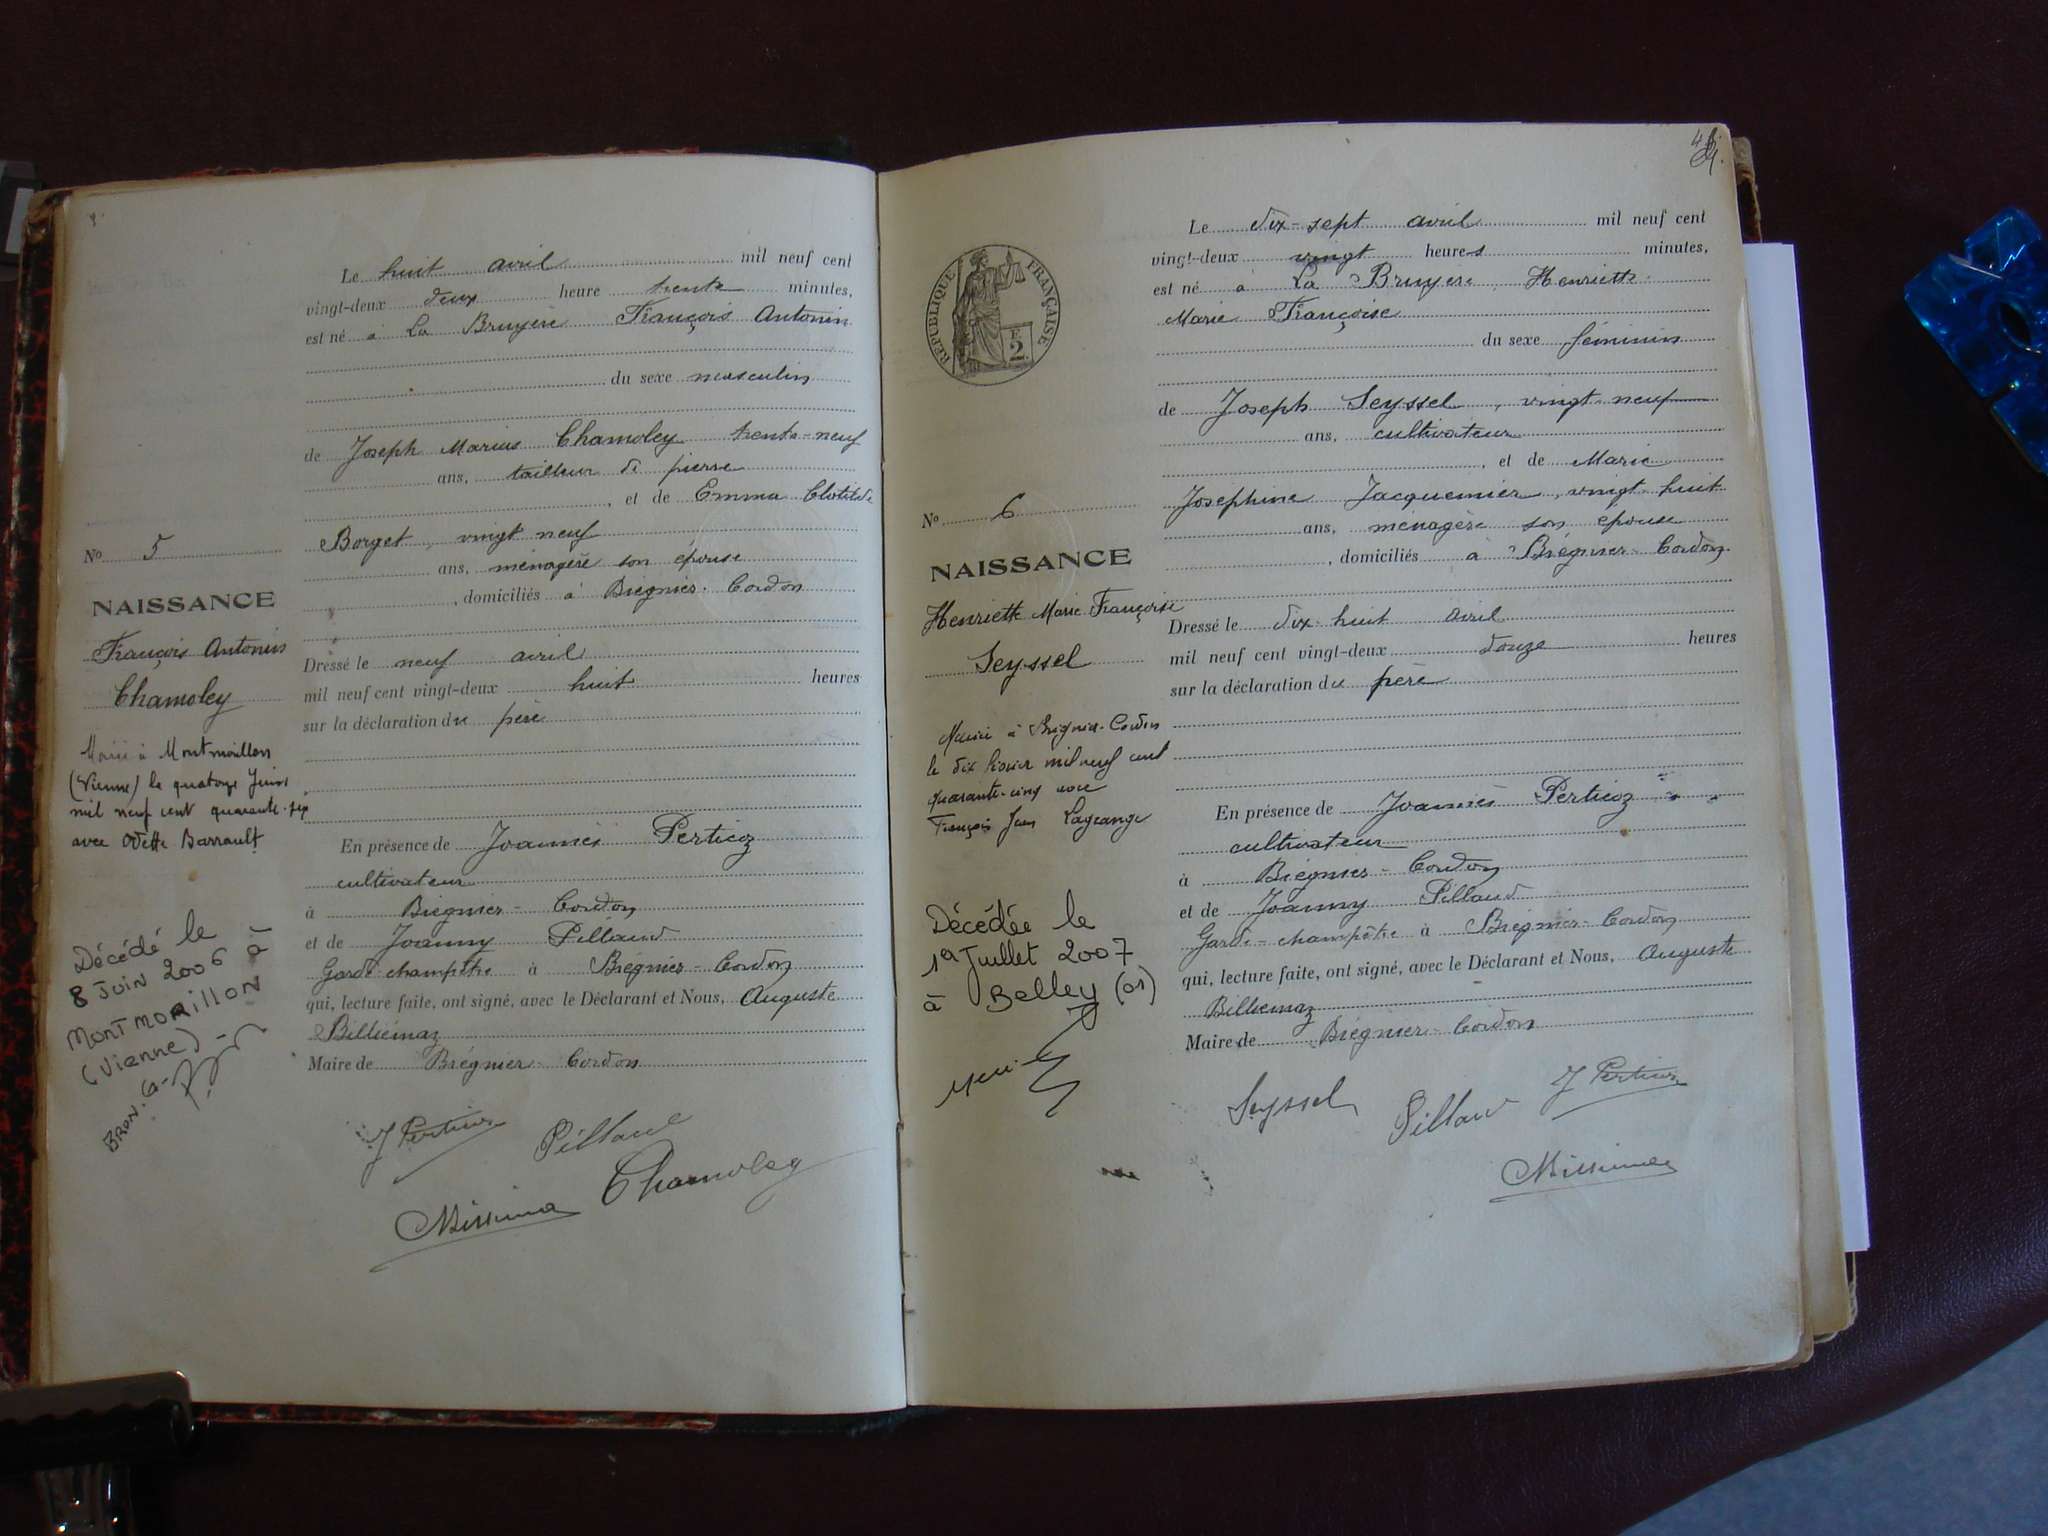 Le huit avril mil neuf cent
vingt-deux deux heure trente minutes,
est né à La Bruyère François Antonin
du sexe masculin
de Joseph Marius Chamoley trente-neuf
ans, tailleur de pierre
, et de Emma Clotilde
Borget, vingt neuf
ans, ménagère son épouse
, domiciliés à Brégnier-Cordon
Dressé le neuf avril
mil neuf cent vingt-deux huit heures
sur la déclaration du père
En présence de Joannès Perticoz
cultivateur
à Brégnier-Cordon
et de Joanny Pillaud
Garde-champêtre à Brégnier-Cordon
qui, lecture faite, ont signé, avec le Déclarant et Nous, Auguste
Billiemaz
Maire de Brégnier-Cordon
J Perticoz Pillaud
Chamoley
No 5
NAISSANCE
François Antonin
Chamoley
Marié à Montmorillon
(Vienne) le quatorze Juin
mil neuf cent quarante-six
avec Odette Barrault
Décédé le
8 Juin 2006 à
MONTMORILLON
(Vienne)
Le dix-sept avril mil neuf cent
vingt-deux vingt heures minutes,
est né à La Bruyère, Henriette
Marie Françoise
du sexe féminin
de Joseph Seyssel, vingt-neuf
ans, cultivateur
, et de Marie
Josephine Jacquemier, vingt-huit
ans, ménagère son épouse
, domiciliés à Brégnier-Cordon
Dressé le dix-huit avril
mil neuf cent vingt-deux douze heures
sur la déclaration du père
En présence de Joannès Perticoz
cultivateur
à Brégnier-Cordon
et de Joanny Pillaud
Garde-champêtre à Brégnier-Cordon
qui, lecture faite, ont signé, avec le Déclarant et Nous, Auguste
Billiemaz
Maire de Brégnier-Cordon
Seyssel Pillaud J Perticoz
RÉPUBLIQUE FRANÇAISE
2
No 6
NAISSANCE
Henriette Marie Françoise
Seyssel
Mariée à Brégnier-Cordon
le dix février mil neuf cent
quarante-cinq avec
François Jean Lagrange
Décédée le
1er Juillet 2007
à Belley (01)